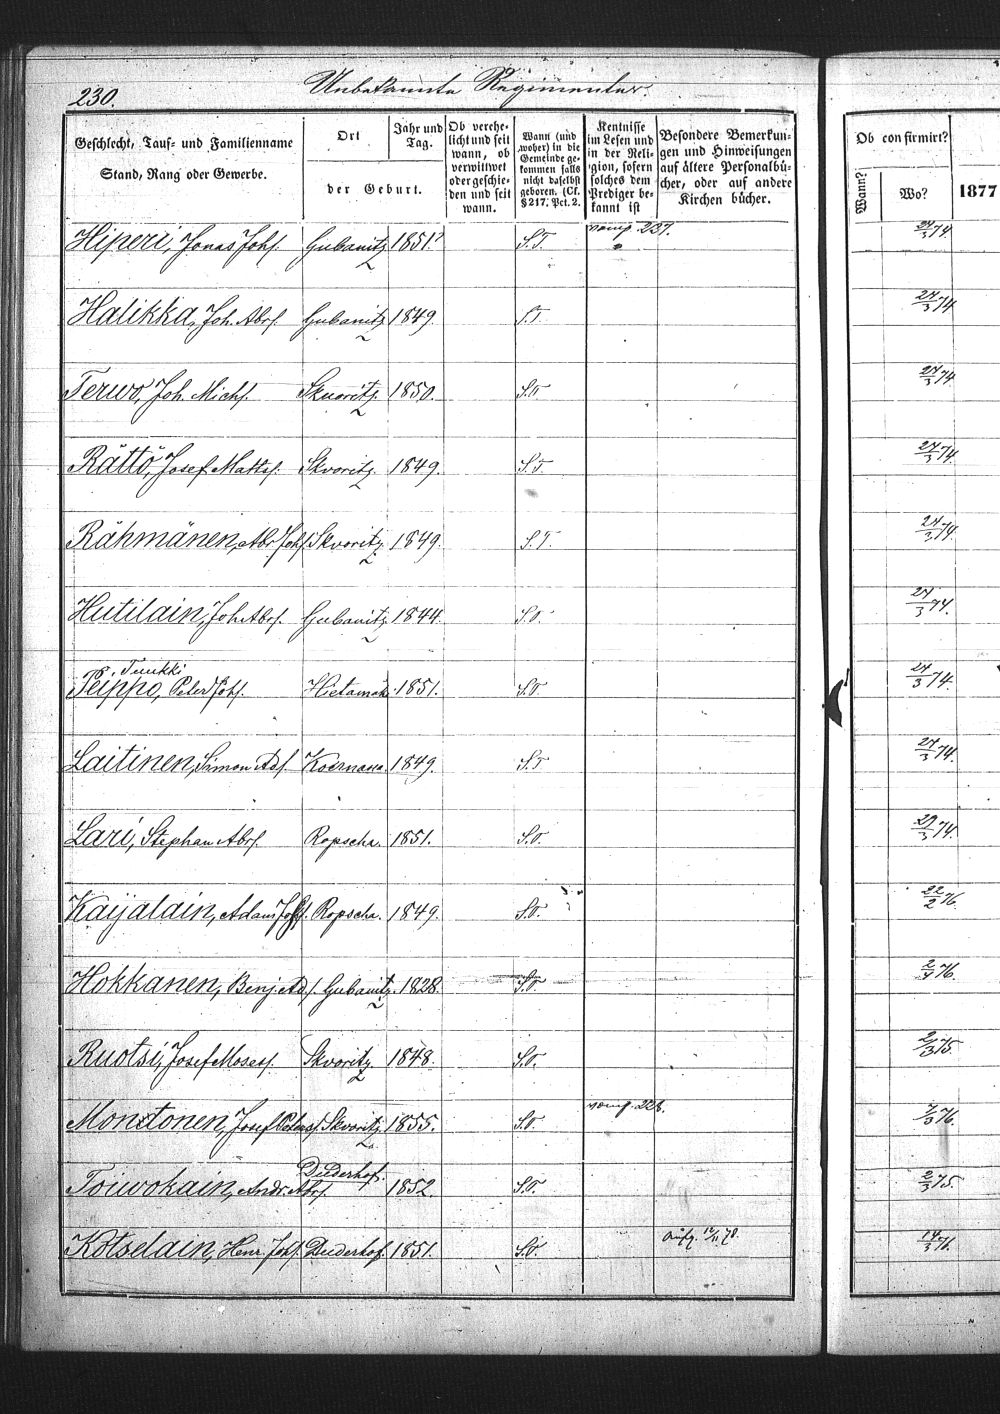 230.
Unbekannte Regimenter.
Geschlecht, Tauf- und Familienname
Stand, Rang oder Gewerbe.
Ort
Jahr und Tag.
der Geburt.
Ob verehe-
licht und seit
wann, ob
verwittwet
oder geschie-
den und seit
wann.
Wann (und
woher) in die
Gemeinde ge-
kommen falls
nicht daselbst
geboren. (Cf.
§ 217, Pct. 2.
Kentnisse
im Lesen und
in der Reli-
gion, sofern
solches dem
Prediger be-
kannt ist
Besondere Bemerkun-
gen und Hinweisungen
auf ältere Personalbü-
cher, oder auf andere
Kirchen bücher.
Ob confirmirt?
Wann?
Wo?
1877
Hiperi, Jonas Johs. Gubanitz 1851? S.T. 237. 24/3 74.
Halikka, Joh. Abrs. Gubanitz 1849. S.T. 24/3 74
Terwo, Joh. Michs. Skuoritz. 1850. S.T. 24/3 74
Rättö, Josef Matts. Skvoritz. 1849. S.T. 24/3 74.
Rähmänen, Abr Johs. Skvoritz. 1849. S.T. 24/3 74.
Hutilain, Joh Abrs. Gubanitz 1844. S.T. 24/3 74.
Tuukki
Peippo, Peter Johs. Hietamäk. 1851. S.T. 24/3 74.
Laitinen, Simon Ads. 1849. S.T. 24/3 74.
Lari, Stephan Abrs. Ropscha. 1851. S.T. 29/3 74.
Kaijalain, Adam Johs. Ropscha. 1849. S.T. 22/2 76.
Hokkanen, Benj. Ads. Gubanitz. 1828. S.T. 2/4 76.
Ruotsi, Josef Moses. Skvoritz. 1848. S.T. 2/3 75.
Monttonen, Josef Peters. Skvoritz 1855. S.T. 228. 7/3 76.
Duderhof.
Toiwokain, Andr. Abrs. 1852. S.T. 2/3 75.
Kotselain, Henr. Johs. Duderhof. 1851. S.T. 14/3 76.